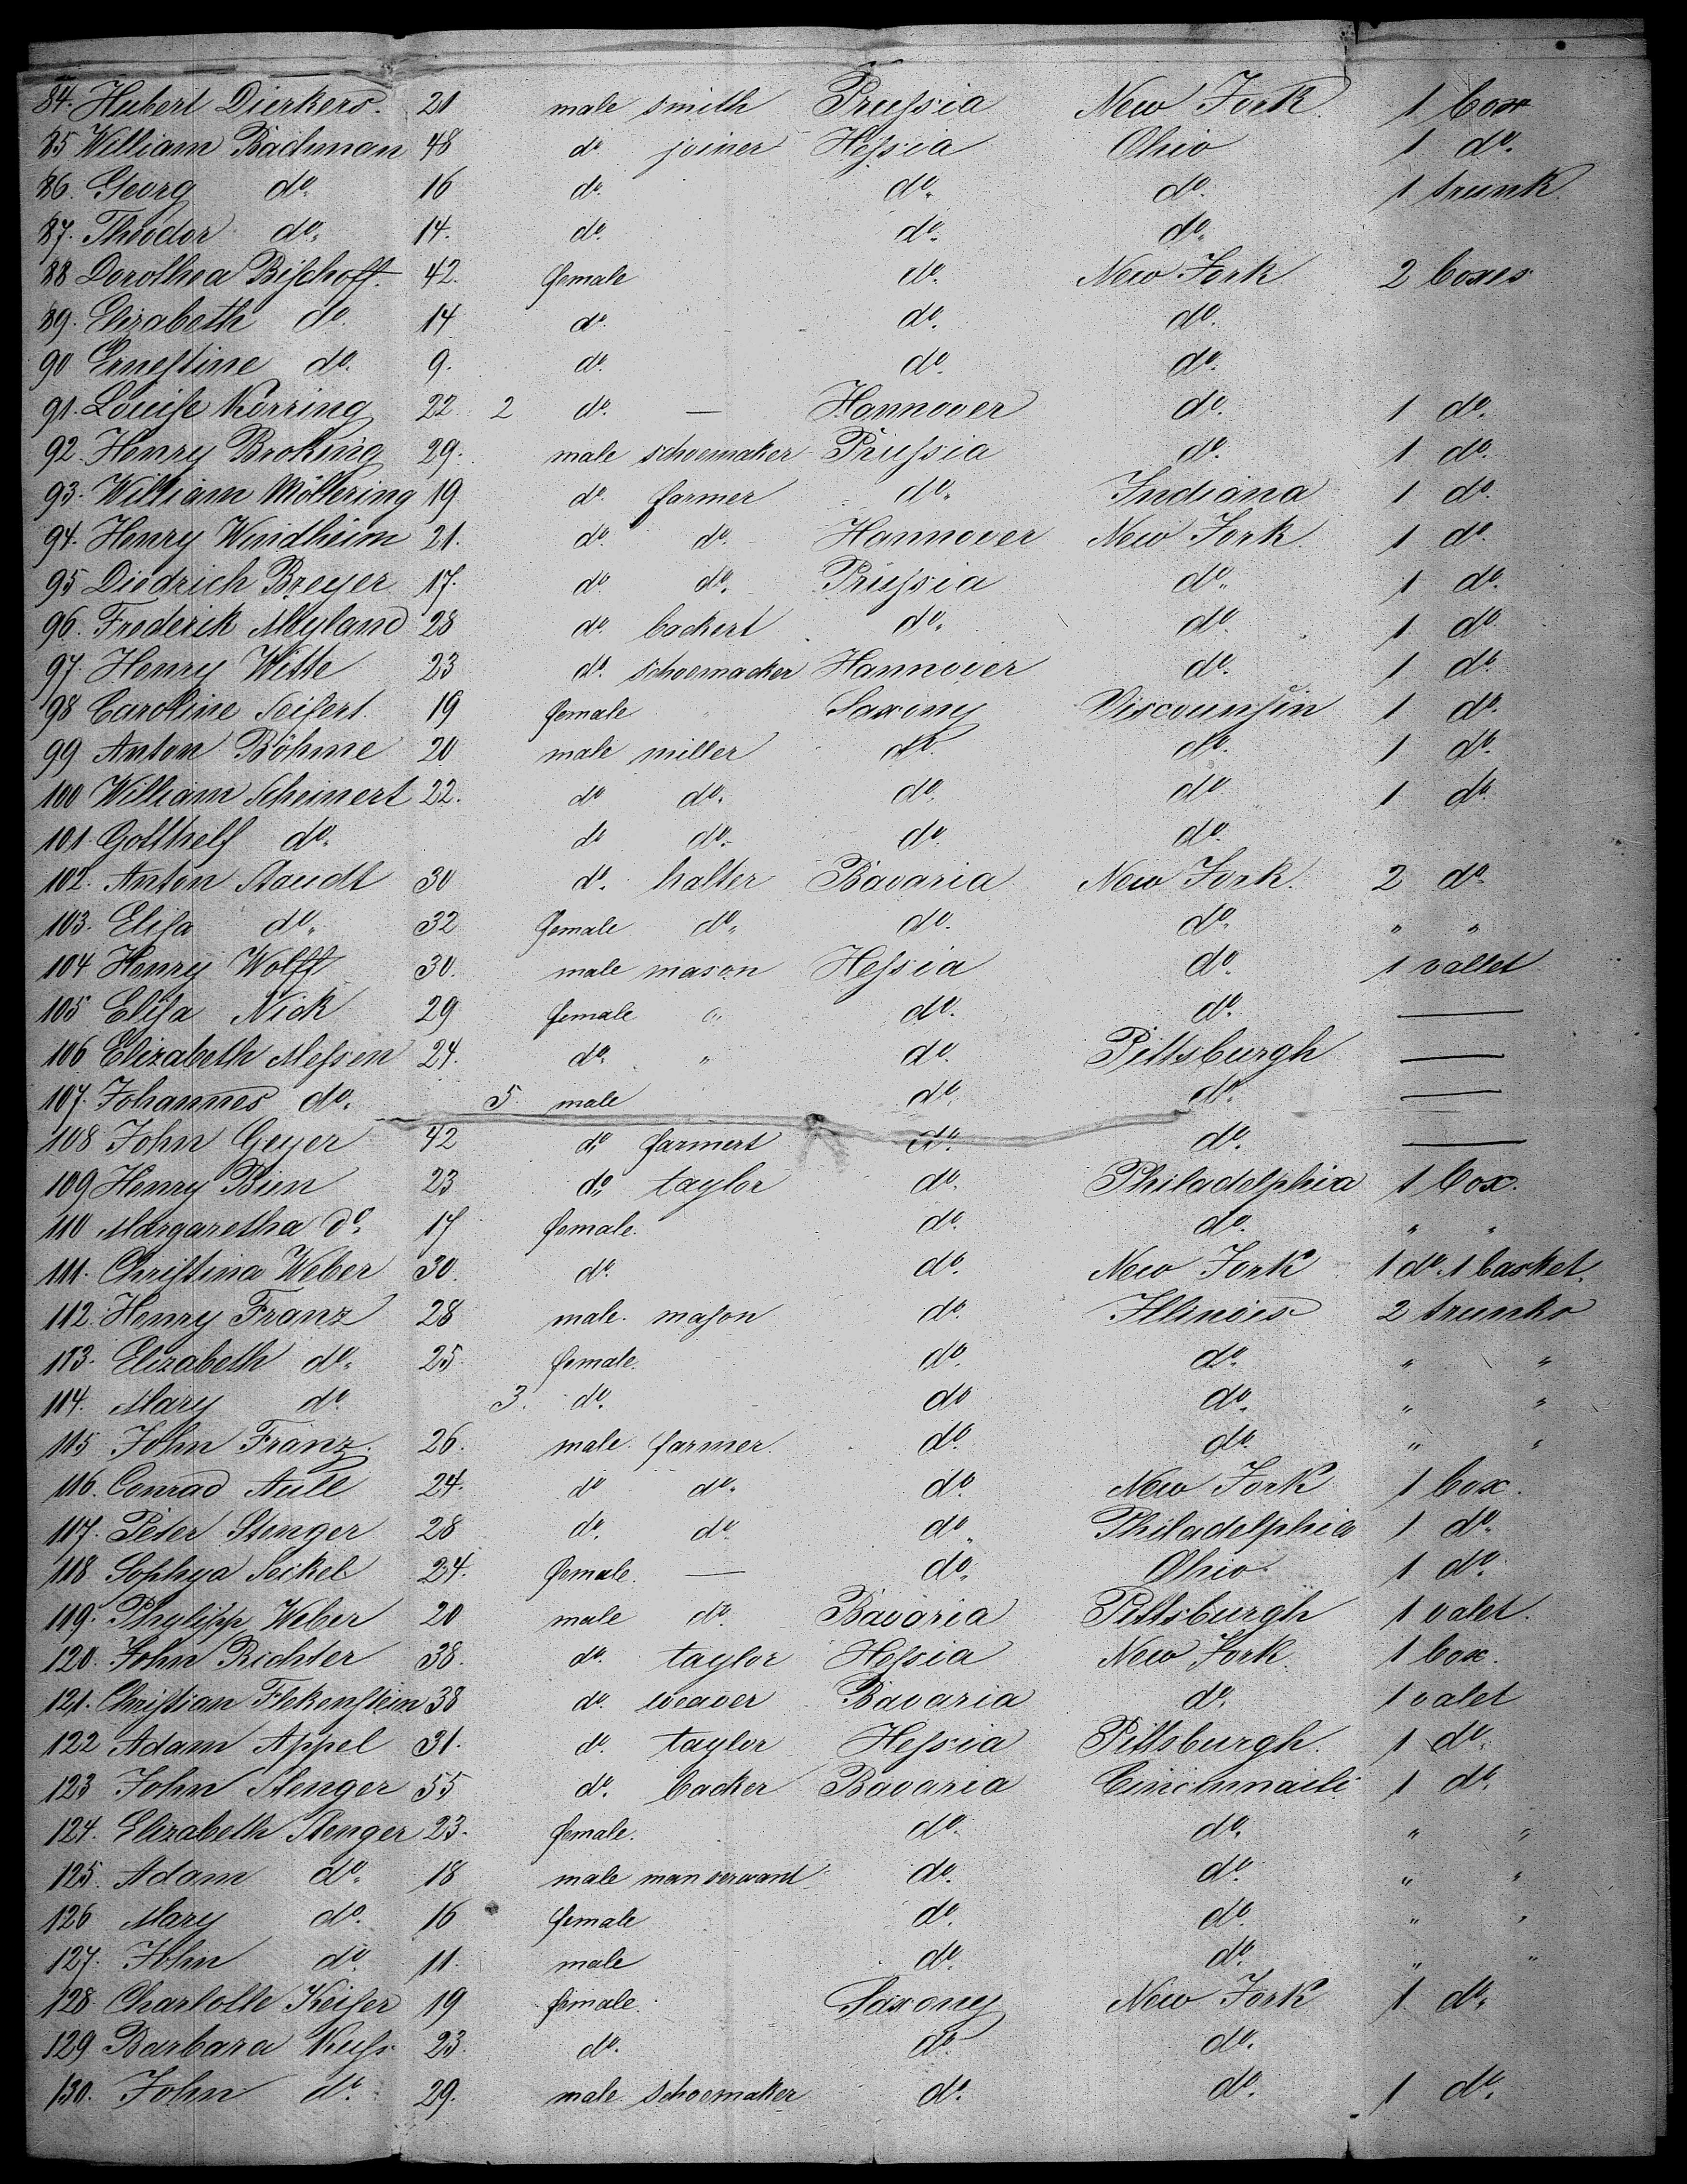 84. Hubert Dierkers. 21 male smith Prussia New York. 1 box
85 William Bachman 48 do. joiner Hessia Ohio 1 do.
86. Georg do. 16 do. do. do. 1 trunk
87. Theodor do. 14. do. do. do.
88 Dorothea Bischoff. 42. female do. New York 2 boxes
89. Elizabeth do. 14 do. do. do.
90 Ernestine do. 9. do. do. do.
91. Louise Körring 22 2 do. — Hannover do. 1 do.
92. Henry Broking 29. male schoemaker Prussia do. 1 do.
93. William Möltering 19 do. farmer do. Indiana 1 do.
94. Henry Windheim 21. do. do. Hannover New York. 1 do.
95 Diedrich Breyer 17. do. do. Prussia do. 1 do.
96. Frederik Meyland 28 do. backert do. do. 1 do.
97. Henry Witte 23 do. schoemacker Hannover do. 1 do.
98 Caroline Seifert. 19 female " Saxony Viscounsin 1 do.
99 Anton Böhme 20 male miller do. do. 1 do.
100 William Scheinert 22. do do. do. do 1 do.
101. Gotthelf do. do do. do. do.
102. Anton Staudt 30 do. halter Bavaria New York. 2 do.
103. Elisa do. 32 female do. do. do. " "
104 Henry Wolff 30. male mason Hessia do. 1 vallet
105 Elisa Nick 29 female " do. do. —
106 Elizabeth Messen 24. do. " do. Pittsburgh —
107. Johannes do. 5 male do. do. —
108 John Geyer 42 do. farmert do. do. —
109 Henry Bien 23 do. taylor do. Philadelphia 1 box.
110 Margaretha do. 17 female. do. do. " "
111. Christina Weber 30. do. do. New York 1 do. 1 basket.
112. Henry Franz 28 male. mason do. Illinois 2 trunks
113. Elizabeth do. 25. female. do. do. " "
114. Mary do. 3. do. do do. " "
115 John Franz. 26. male. farmer. do. do. " "
116. Conrad Aull 24. do do. do. New York 1 box.
117. Peter Stenger 28 do. do. do. Philadelphia 1 do.
118 Sophya Seikel 24. female. — do. Ohio. 1 do.
119. Phylipp Weber 20 male do. Bavaria Pittsburgh 1 valet.
120. John Richter 38. do. taylor Hessia New York. 1 box.
121. Christian Flekenstein 38 do. weaver Bavaria do. 1 valet
122 Adam Appel 31. do. taylor Hessia Pittsburgh. 1 do.
123 John Stenger 55 do. backer Bavaria Cinchinaiti 1 do.
124. Elizabeth Stenger 23. female. do. do. " "
125. Adam do. 18 male man servant do. do. " "
126 Mary do. 16 female do. do. " "
127. John do. 11. male do. do. " "
128. Charlotte Keiser 19 female. Saxony New York 1. do.
129 Barbara Kuss 23. do. do. do.
130. John do. 29. male. schoemaker do. do. 1 do.